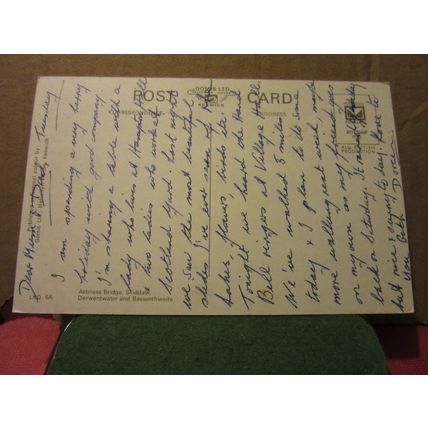 POST CARD
CORRESPONDENCE
ADDRESS
KESWICK
LKD 6A
Ashness Bridge, Skiddaw,
Derwentwater and Bassenthwaite
Dear Mum & Dad, Tuesday
I am spending a very happy
holiday with good company
I'm sharing a table with a
lady who lives at
& two ladies who work at
Scotland Yard. Last night
we saw the most beautiful
slides I've ever seen, of
Lakes, flowers, birds etc.
Tonight we heard the Hand
Bell ringers at Village Hall.
We've walked 5 miles
today & I plan to do some
more walking next week, maybe
on my own as my friend goes
back on Saturday. It
but nice & sunny to-day. Love to
you both